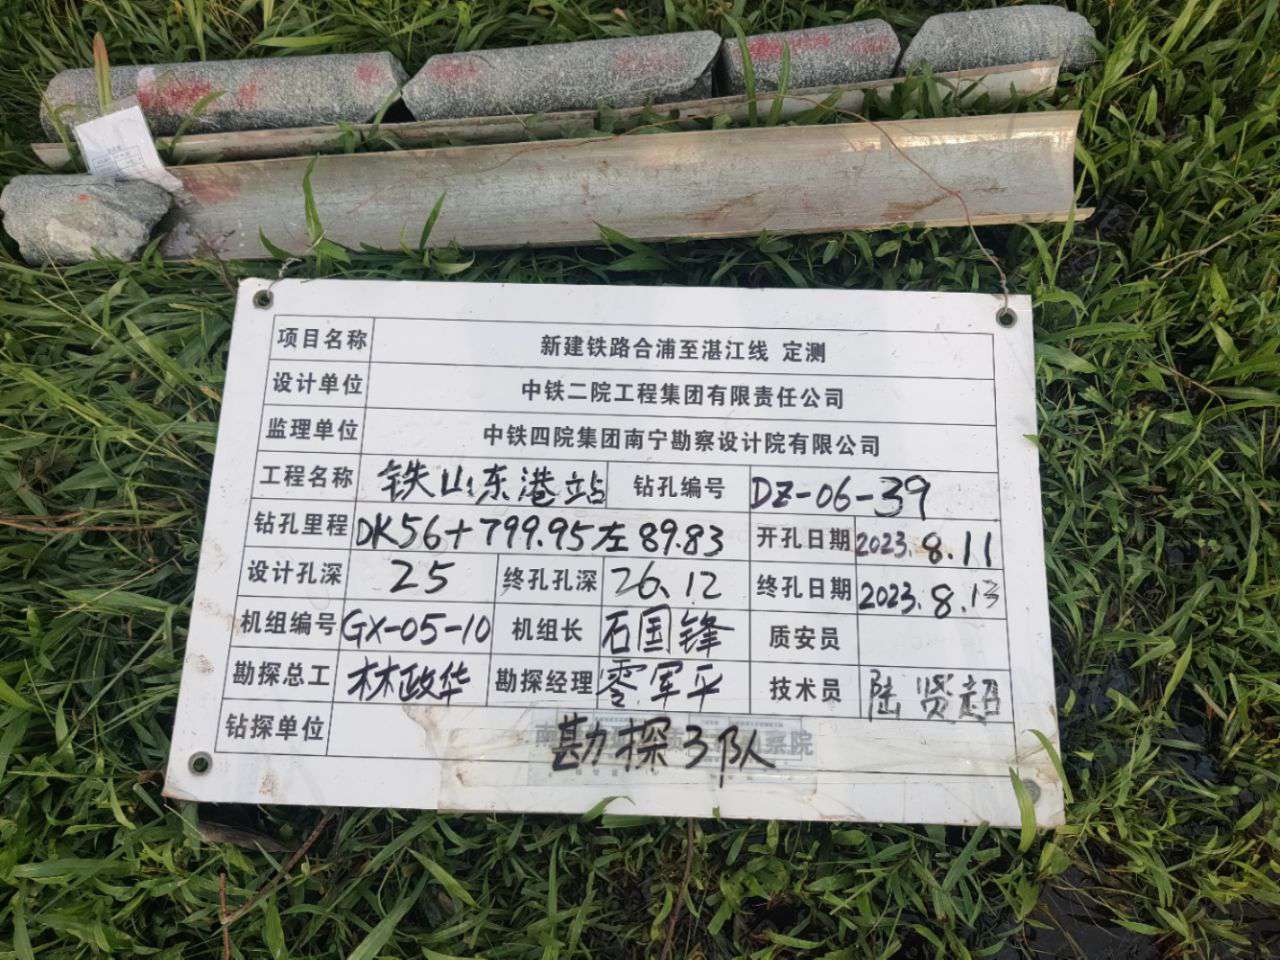 项目名称 新建铁路合浦至湛江线 定测
设计单位 中铁二院工程集团有限责任公司
监理单位 中铁四院集团南宁勘察设计院有限公司
工程名称 铁山东港站 钻孔编号 DZ-06-39
钻孔里程 DK56+799.95左89.83 开孔日期 2023.8.11
设计孔深 25 终孔孔深 26.12 终孔日期 2023.8.13
机组编号 GX-05-10 机组长 石国锋 质安员
勘探总工 林政华 勘探经理 零军平 技术员 陆贤超
钻探单位 勘探3队